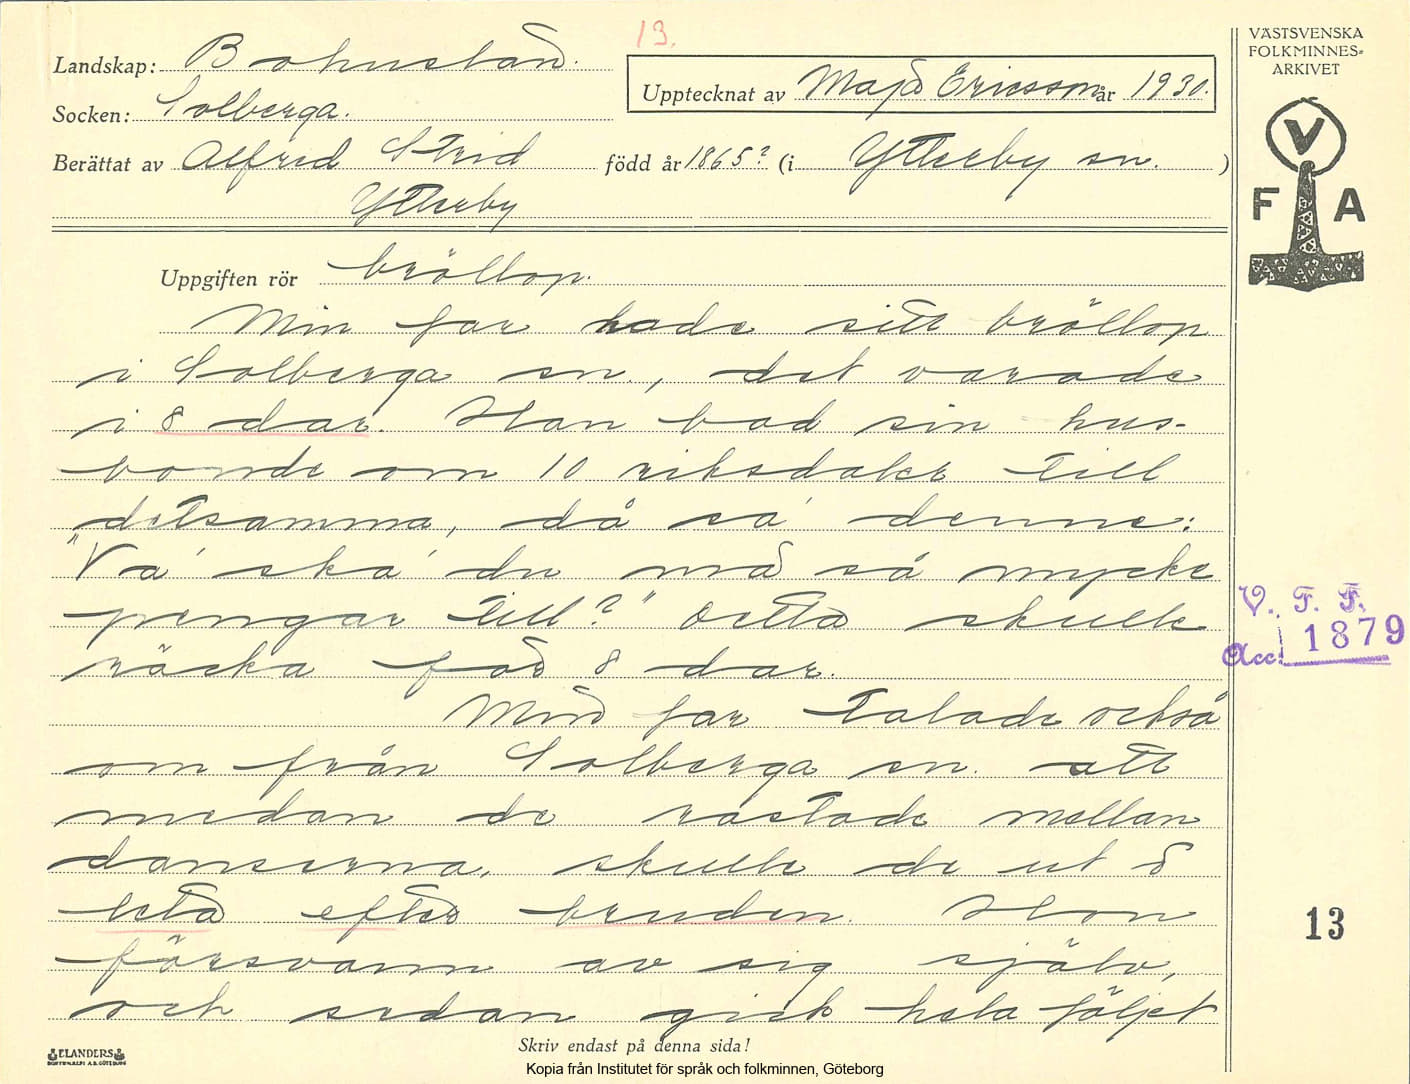 13.
Landskap: Bohuslän.
Upptecknat av Maja Ericsson år 1930.
Socken: Solberga.
Berättat av Alfred Strid född år 1865? (i Ytterby sn. )
Ytterby
VÄSTSVENSKA
FOLKMINNES=
ARKIVET
V
F A
Uppgiften rör bröllop.
Min far hade sitt bröllop
i Solberga sn., det varade
i 8 dar. Han bad sin hus-
bonde om 10 riksdaler till
detsamma, då sa' denne:
"Va' ska' du må så mycke
pengar till?" Detta skulle
räcka för 8 dar.
Min far talade också
om från Solberga sn. att
medan de rastade mellan
danserna, skulle de ut å
leta efter bruden. Hon
försvann av sig själv,
och sedan gick hela följet
V. F. F.
Acc. 1879
13
Skriv endast på denna sida!
ELANDERS
Kopia från Institutet för språk och folkminnen, Göteborg